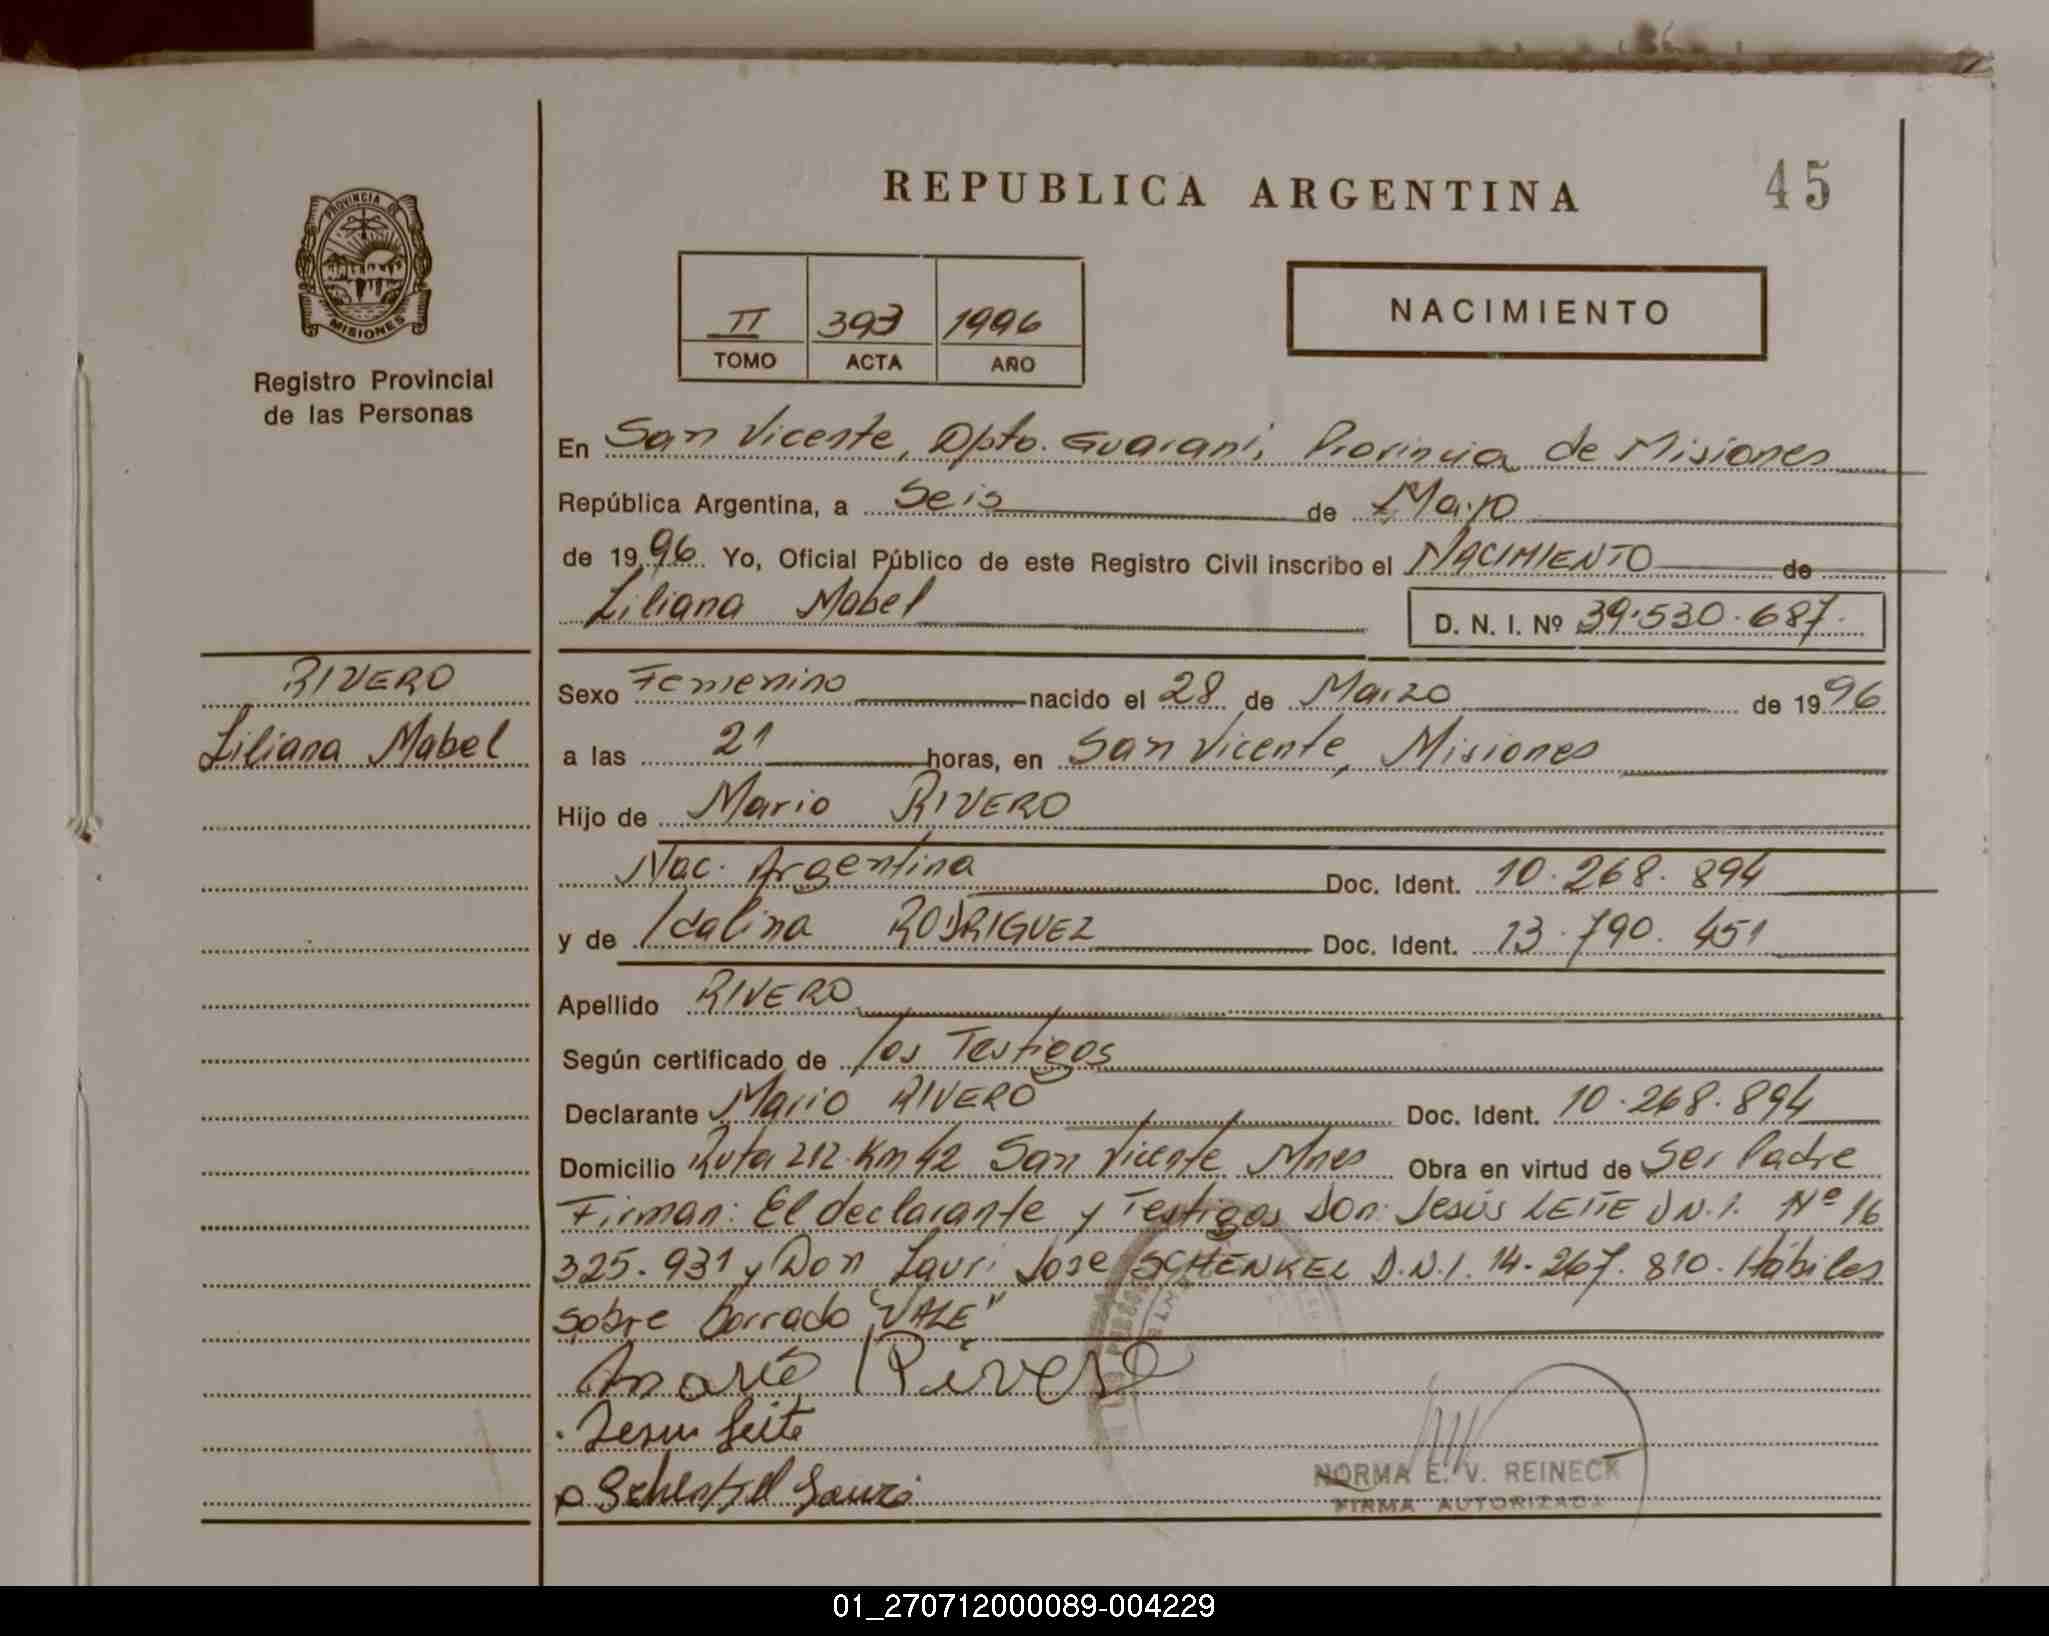 REPUBLICA ARGENTINA
45
PROVINCIA DE
MISIONES
Registro Provincial
de las Personas
II 393 1996
TOMO ACTA AÑO
NACIMIENTO
En San Vicente, Dpto. Guaraní, Provincia de Misiones
República Argentina, a Seis de Mayo
de 1996. Yo, Oficial Público de este Registro Civil inscribo el NACIMIENTO de
Liliana Mabel
D. N. I. Nº 39.530.687.
RIVERO
Liliana Mabel
Sexo Femenino nacido el 28 de Marzo de 1996
a las 21 horas, en San Vicente, Misiones
Hijo de Mario RIVERO
Nac. Argentina Doc. Ident. 10.268.894
y de Idalina RODRIGUEZ Doc. Ident. 13.790.451
Apellido RIVERO
Según certificado de los Testigos
Declarante Mario RIVERO Doc. Ident. 10.268.894
Domicilio Ruta 212 Km 42 San Vicente Mnes Obra en virtud de Ser Padre
Firman: El declarante y Testigos Don: Jesús LEITE D.N.I. Nº 16
325.931 y Don Lauri José SCHENKEL D.N.I. 14.267.810. Hábiles
sobre borrado "VALE"
Mario Rivero
Jesus Leite
Schenkel Lauri
NORMA E. V. REINECK
FIRMA AUTORIZADA
01_270712000089-004229